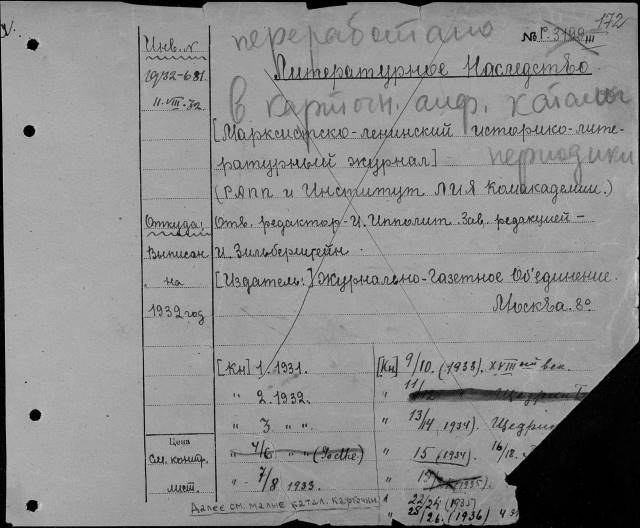 Инв. №
1932-681.
11.VIII.32
переработано
№ Р. 3199 III
172
Литературное Наследство
в карточн. алф. каталог
периодики
[Марксистско-ленинский историко-лите-
ратурный журнал]
(РАПП и Институт ЛИЯ Комакадемии.)
Откуда:
Выписан
на
1932 год
Отв. редактор - И. Ипполит. Зав. редакцией -
И. Зильберштейн.
[Издатель:] Журнально-Газетное Об'единение.
Москва. 8º
[Кн] 1. 1931.
" 2. 1932.
" 3 " "
" 4/6 " " (Goethe)
" - 7/8 1933.
[Кн] 9/10. (1933). XVIII ый век.
" 11/12 Щедрин
" 13/14 1934). Щедрин
" 15 (1934). 16/18.
" 15 1935).
" 22/24 (1935)
" 25/26. (1936)
Цена
См. контр.
лист.
Далее см. малые катал. карточки